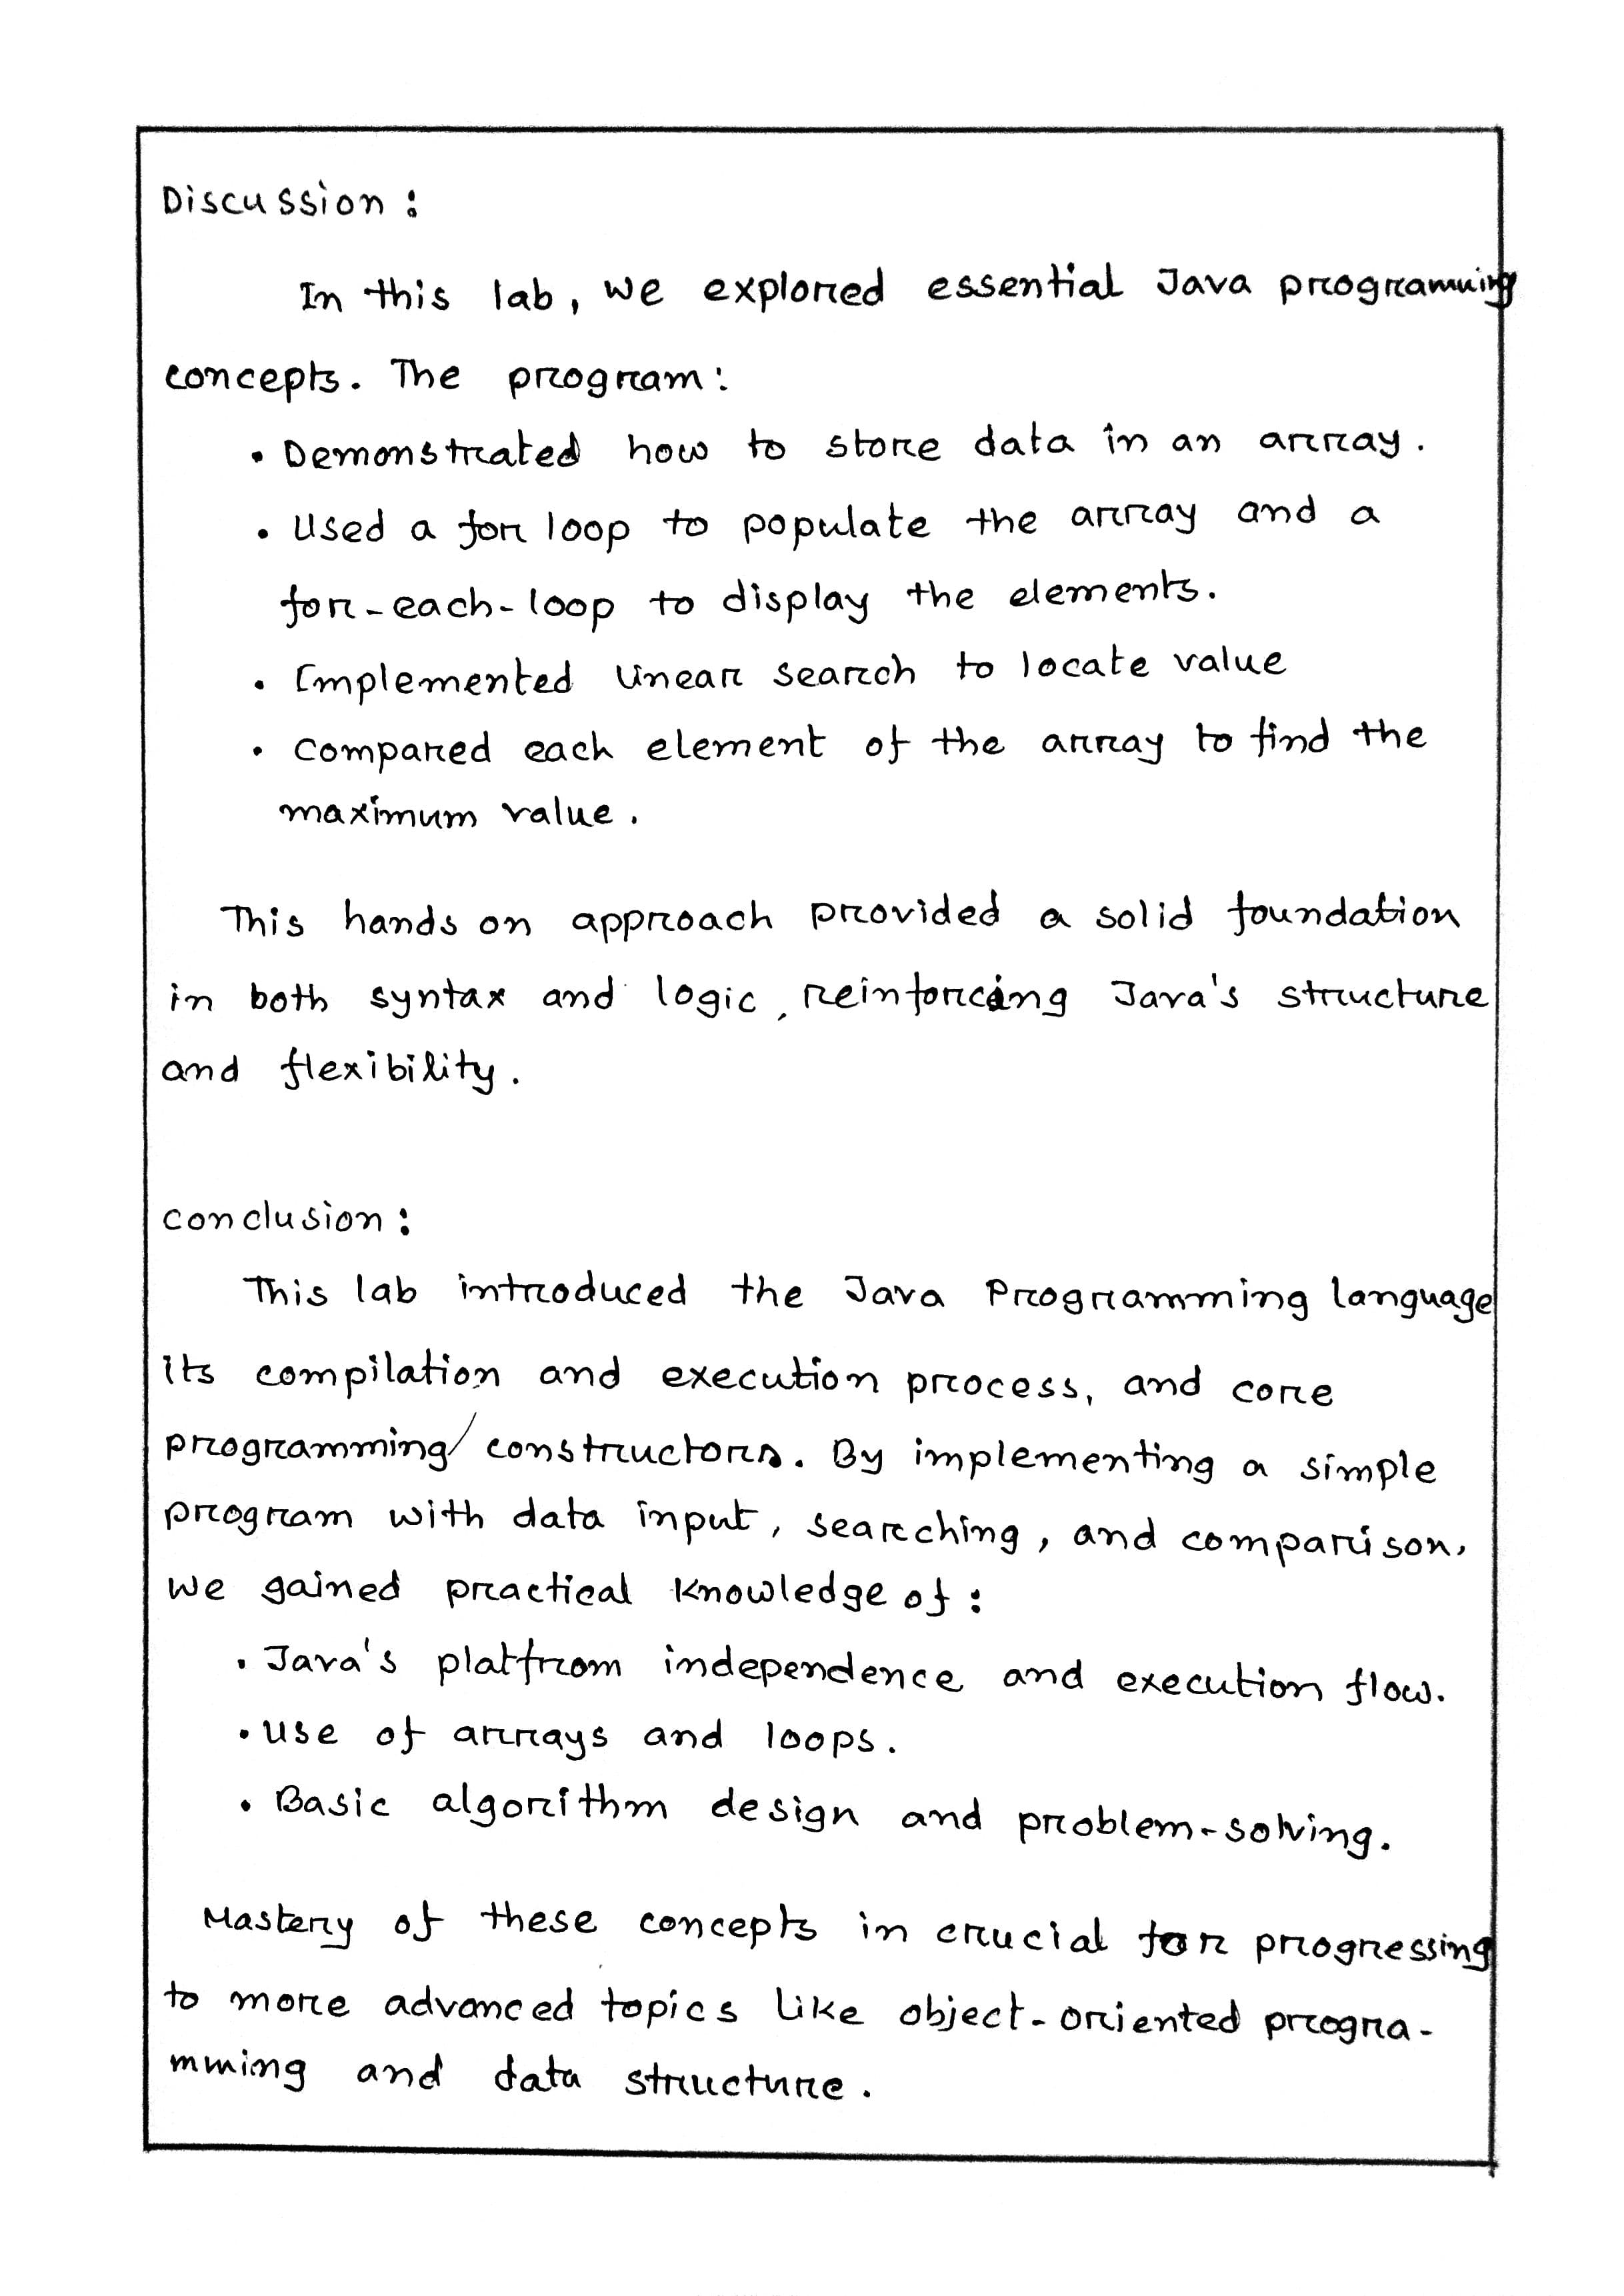 Discussion :
In this lab, we explored essential Java programming
concepts. The program:
• Demonstrated how to store data in an array.
• Used a for loop to populate the array and a
for-each-loop to display the elements.
• Implemented linear search to locate value
• compared each element of the array to find the
maximum value.
This hands on approach provided a solid foundation
in both syntax and logic, reinforcing Java's structure
and flexibility.
conclusion :
This lab introduced the Java Programming language
its compilation and execution process, and core
programming constructors. By implementing a simple
program with data input, searching, and comparison,
we gained practical knowledge of :
• Java's platfrom independence and execution flow.
• use of arrays and loops.
• Basic algorithm design and problem-solving.
Mastery of these concepts in crucial for progressing
to more advanced topics like object-oriented progra-
mming and data structure.